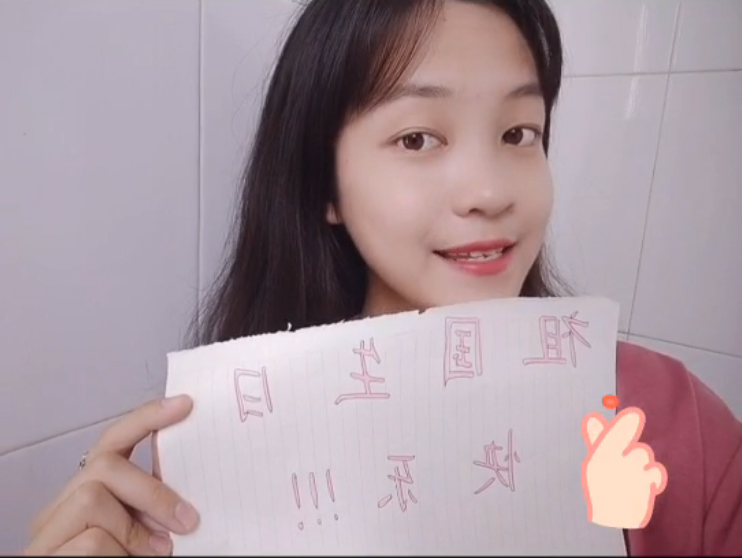 祖国生日
快乐!!!